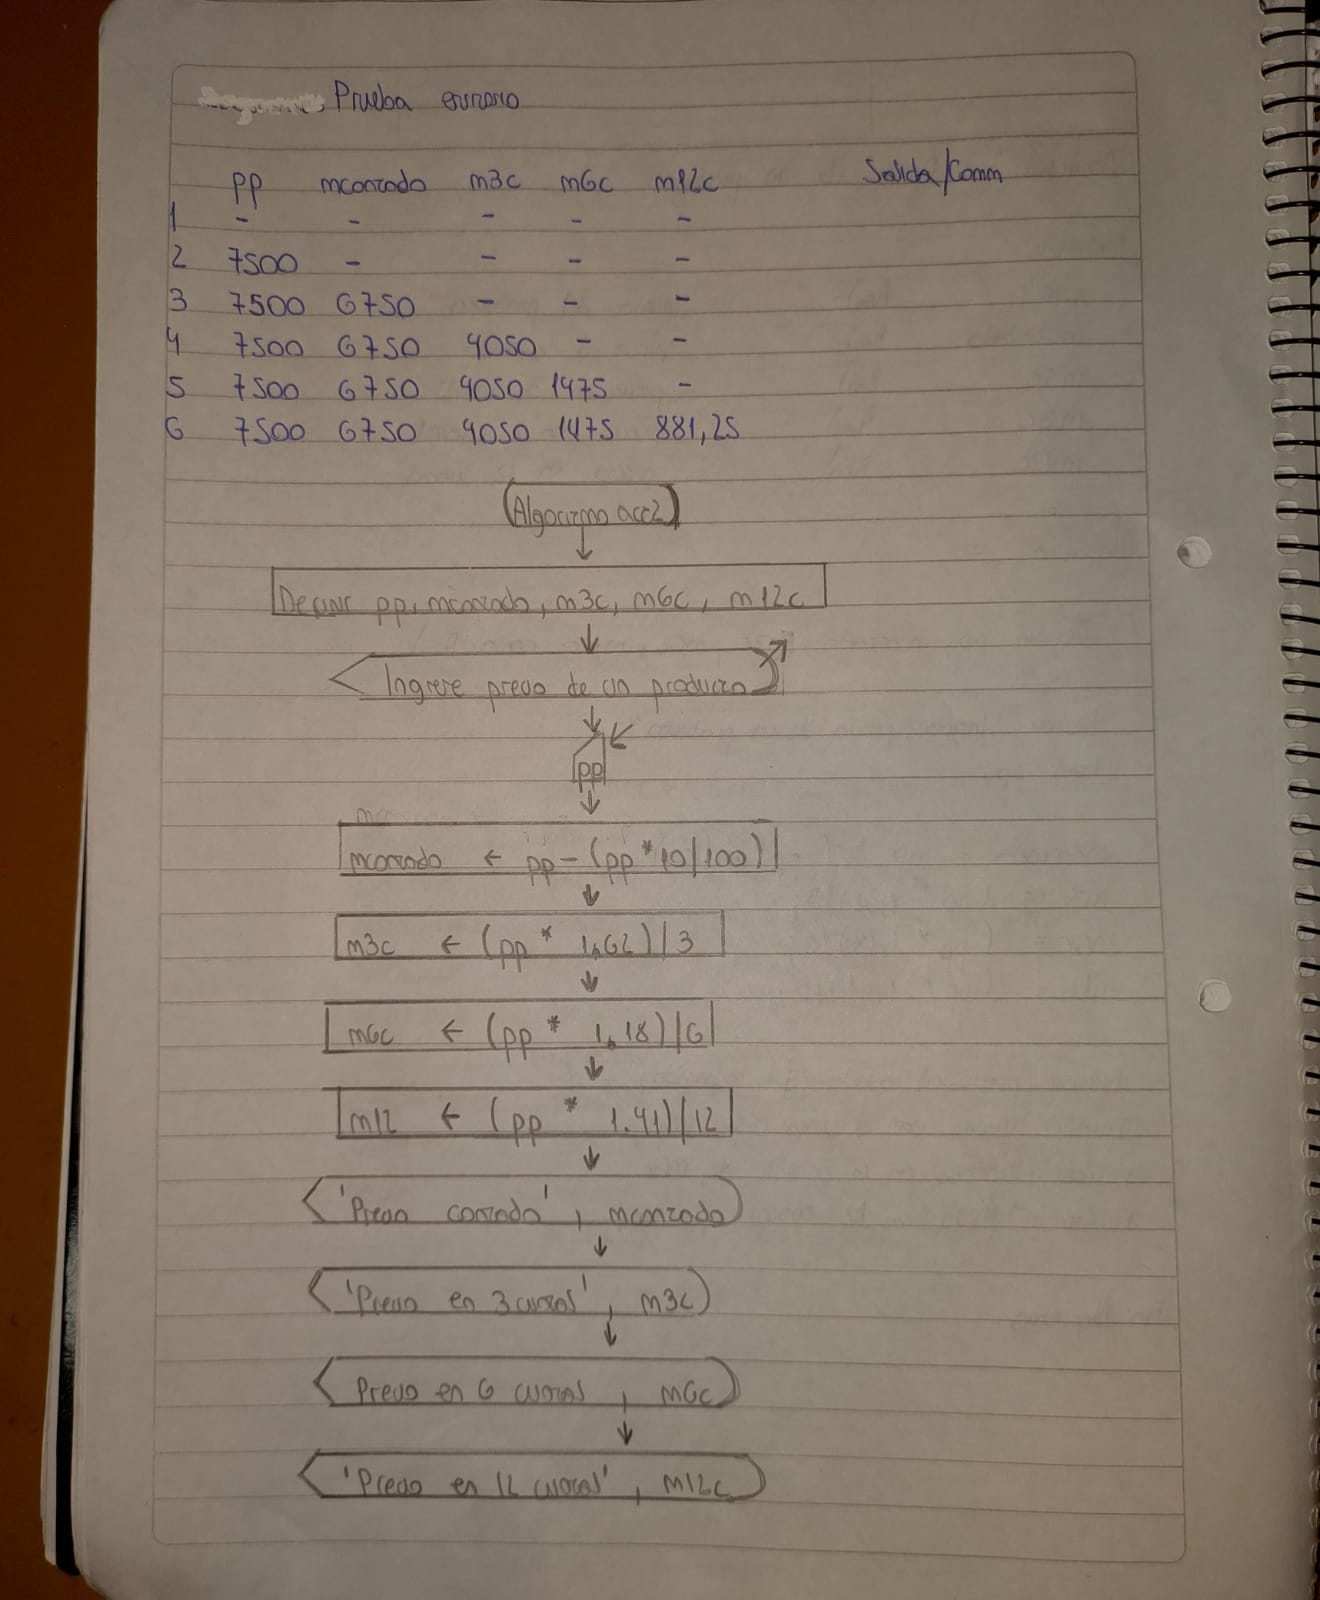 Prueba escritorio
pp mcontado m3c m6c m12c Salida/Comm
1 - - - - -
2 7500 - - - -
3 7500 6750 - - -
4 7500 6750 4050 - -
5 7500 6750 4050 1475 -
6 7500 6750 4050 1475 881,25
Algoritmo act2
Definir pp, mcontado, m3c, m6c, m12c
Ingrese precio de un producto
pp
mcontado ← pp - (pp * 10/100)
m3c ← (pp * 1.62)/3
m6c ← (pp * 1.18)/6
m12 ← (pp * 1.41)/12
'Precio contado', mcontado
'Precio en 3 cuotas', m3c
Precio en 6 cuotas, m6c
'Precio en 12 cuotas', m12c